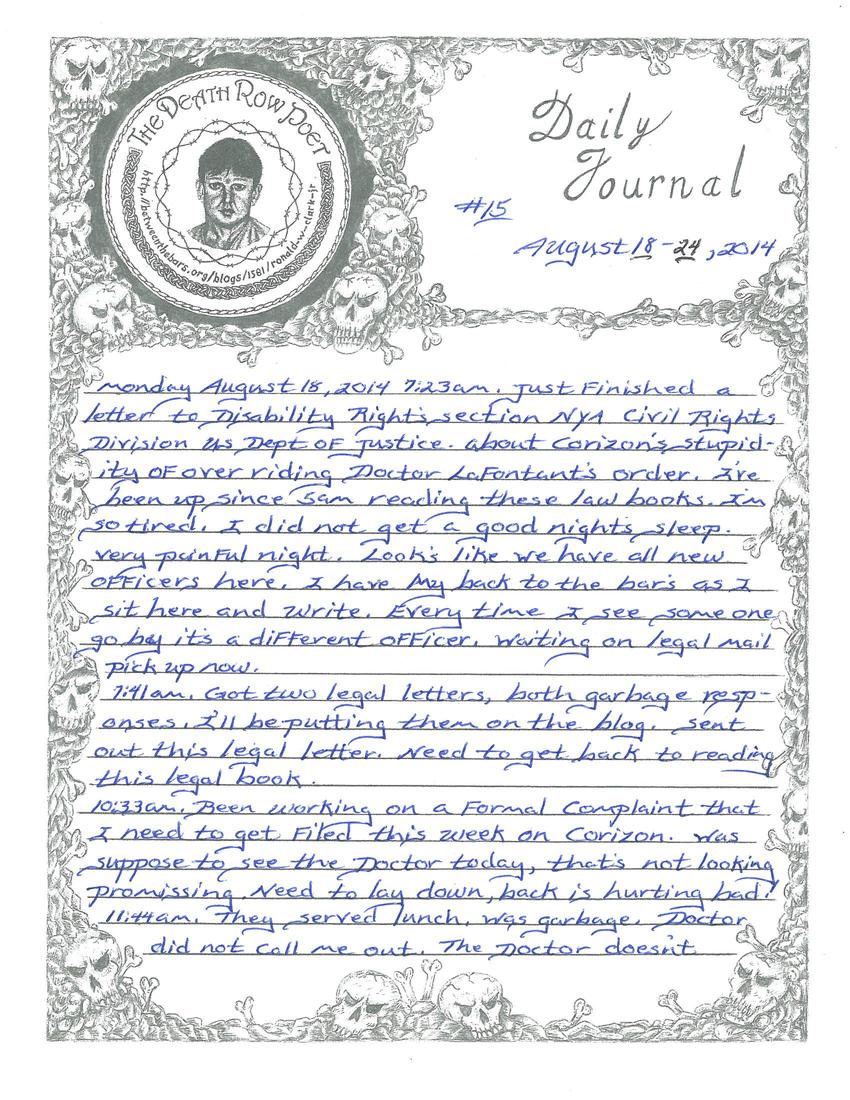 THE DEATH ROW POET
http://betweenthebars.org/blogs/1581/ronald-w-clark-jr
Daily
Journal
#15
August 18-24, 2014
monday August 18, 2014 7:23am. Just Finished a
letter to Disability Right's section NYA Civil Rights
Division Us Dept of Justice. about Corizon's stupid-
ity of over riding Doctor LaFontant's order. I've
been up since 5am reading these law books. I'm
so tired. I did not get a good night's sleep.
very painful night. Look's like we have all new
officers here. I have my back to the bar's as I
sit here and write. Every time I see some one
go by it's a different officer. Waiting on legal mail
pick up now.
7:41am. Got two legal letters, both garbage resp-
onses. I'll be putting them on the blog. sent
out this legal letter. Need to get back to reading
this legal book.
10:33am. Been working on a Formal Complaint that
I need to get Filed this week on Corizon. was
suppose to see the Doctor today, that's not looking
promissing. Need to lay down, back is hurting bad!
11:44am. They served lunch, was garbage. Doctor
did not call me out. The Doctor doesn't